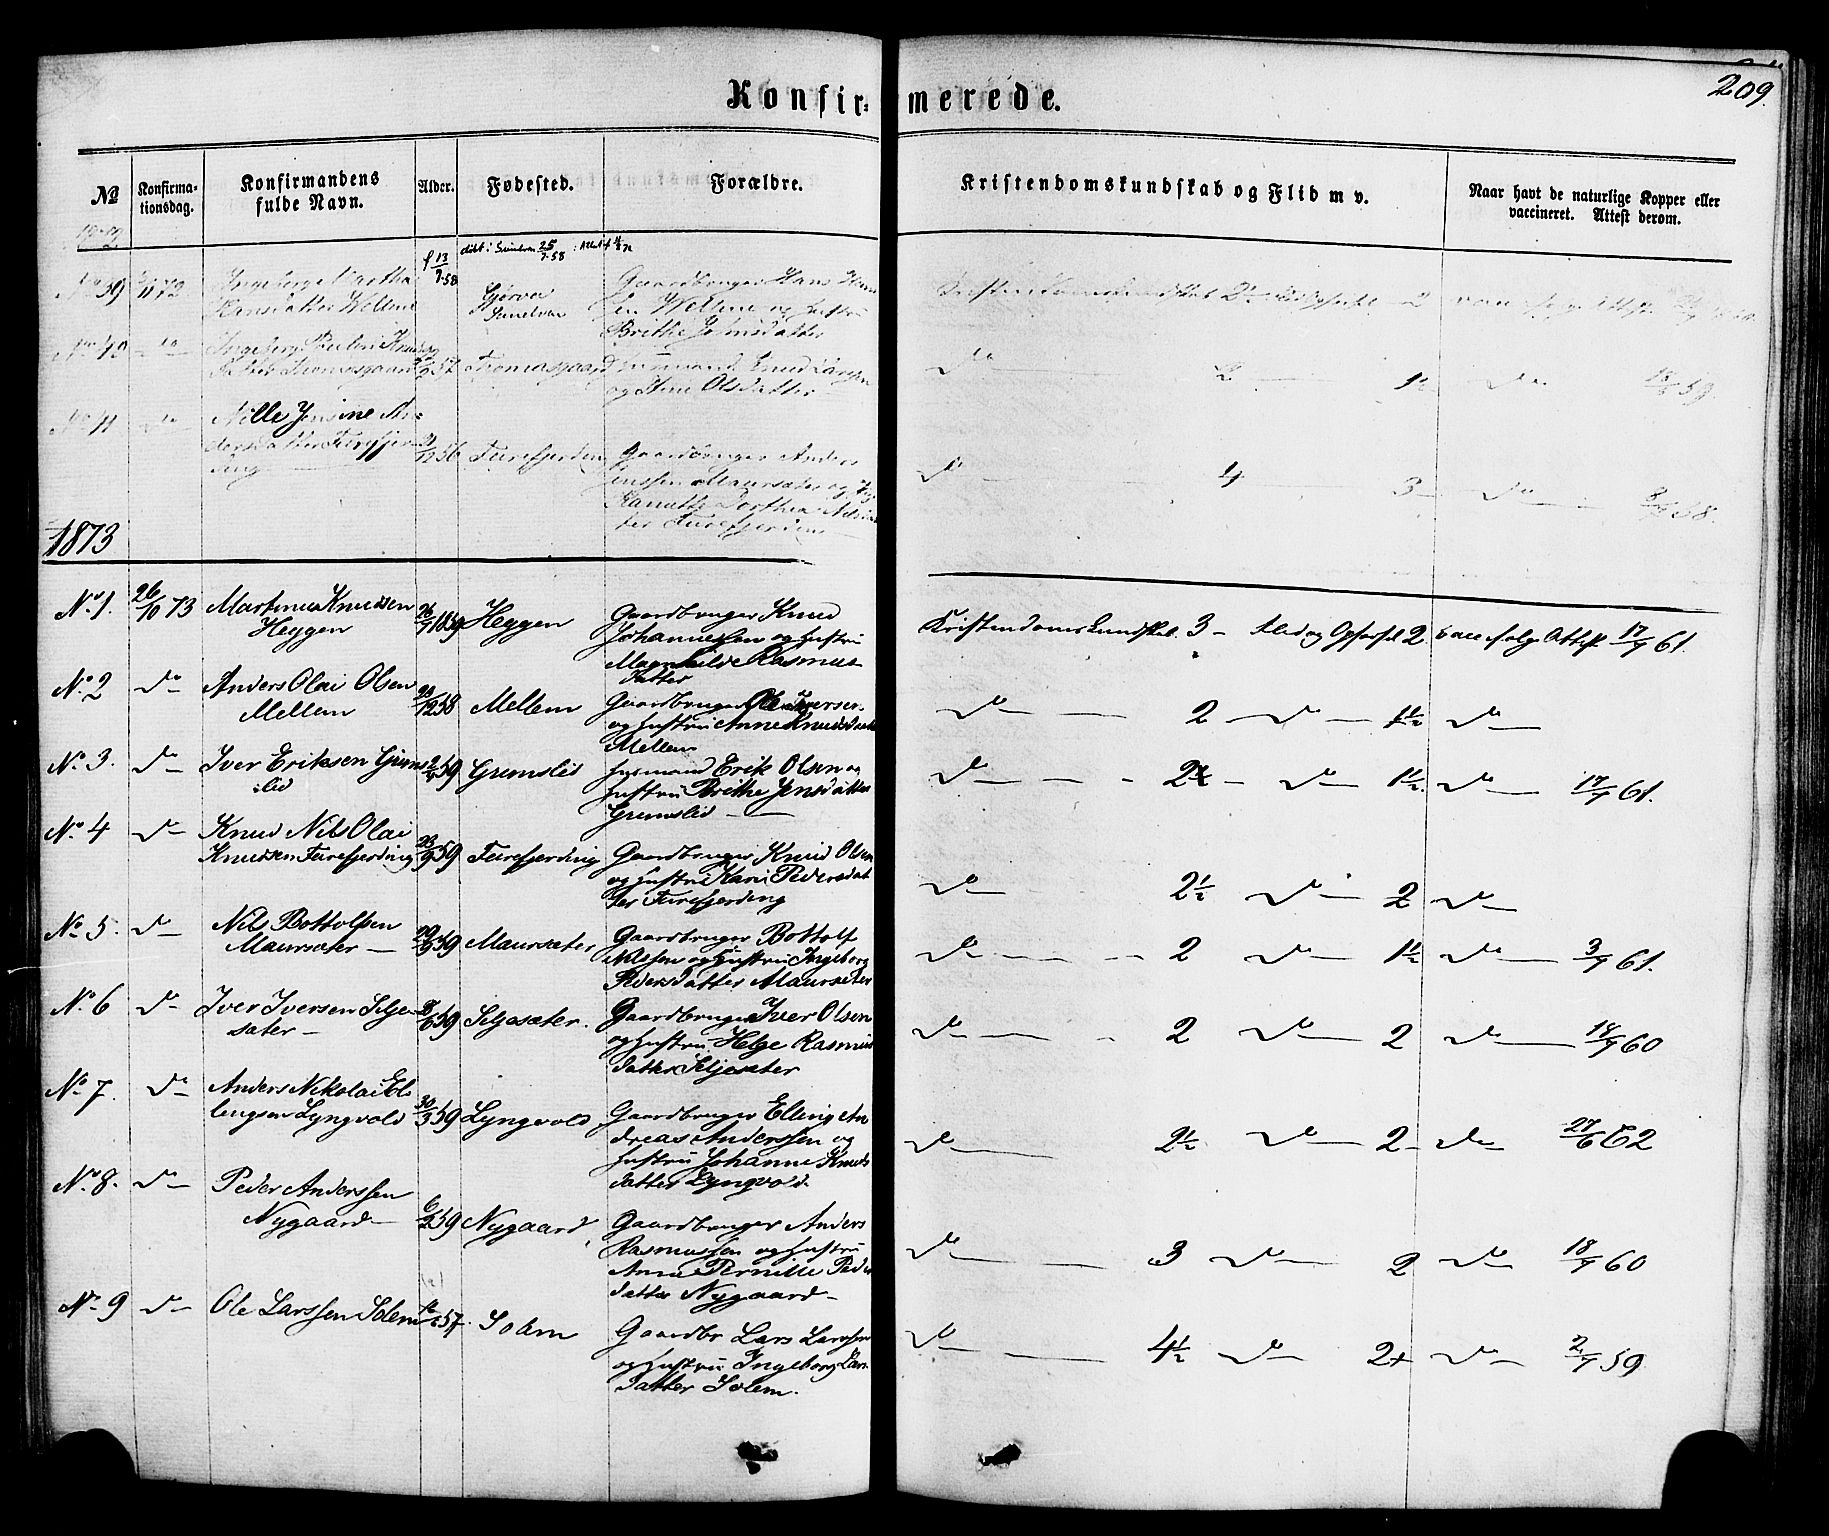 209.
Konfir- merede.
No
Konfirma-
tionsdag.
Konfirmandens
fulde Navn.
Alder.
Fødested.
Forældre.
Kristendomskundskab og Flid m v.
Naar havt de naturlige Kopper eller
vaccineret. Attest derom.
No 39
Ingeborg Martha
Hansdatter
13/9 58
Sunelven
Gaardbruger Hans
og Hustru
Brithe Johnsdatter
No 40 do
Ingeborg Knuds
datter Thomasgaard
Thomasgaard
Knud Larsen
og Stine Olsdatter
do 2 1½ do
No 41 do
Nille Jensine An-
dersdatter Furefjer-
ding
12 56
Furefjerden
Gaardbruger Anders
Jenssen Maursæter og
Dorthea
Furefjerden
do 4 3 do 58.
1873
No 1. 26/10 73
Martinus Knudsen
Heggen
1859
Heggen
Gaardbruger Knud
Johannessen og Hustru
Magnhilde Rasmus-
datter
Kristendomskundskab 3 - Flid og Opførsel 2. vac. ifølge Attest 17/9 61.
No 2 do
Anders Olai Olsen
Mellem
12 58
Mellem
Gaardbruger Ole Iversen
og Hustru Anne Knudsdatter
Mellem
do 2 do 1½ do
No 3. do
Iver Eriksen Grems-
lid
59
Gremslid
Husmand Erik Olsen og
Hustru Brithe Jensdatter
Gremslid
do 2 do 1½ do 17/9 61.
No 4 do
Knud Nils Olai
Knudsen Furefjerding
59
Furefjerding
Gaardbruger Knud Olsen
og Hustru Kari Pedersdat-
ter Furefjerding
do 2½ do 2 do
No 5. do
Nils Bottolfsen
Maursæter
59
Maursæter
Gaardbruger Bottolf
Nilssen og Hustru Ingeborg
Pedersdatter Maursæter
do 2 do 1½ do 3/9 61.
No 6 do
Iver Iversen Silje-
sæter
59
Siljesæter.
Gaardbruger Iver Olsen
og Hustru Helge Rasmus
datter Siljesæter
do 2 do 2 do 18/9 60
No 7. do
Anders Nikolai El-
lingsen Lyngvold
30/3 59
Lyngvold
Gaardbruger Elling An-
dreas Anderssen og
Hustru Johanne Knuds
datter Lyngvold.
do 2½ do 2 do 27/6 62
No 8. do
Peder Anderssen
Nygaard
59
Nygaard
Gaardbruger Anders
Rasmussen og Hustru
Anne Pernille Peder
datter Nygaard
do 3 do 2 do 18/9 60
No 9 do
Ole Larssen Solem
57.
Solem
Gaardbr Lars Larssen
og Hustru Ingeborg Lars
datter Solem.
do 4½ do 2+ do 2/9 59